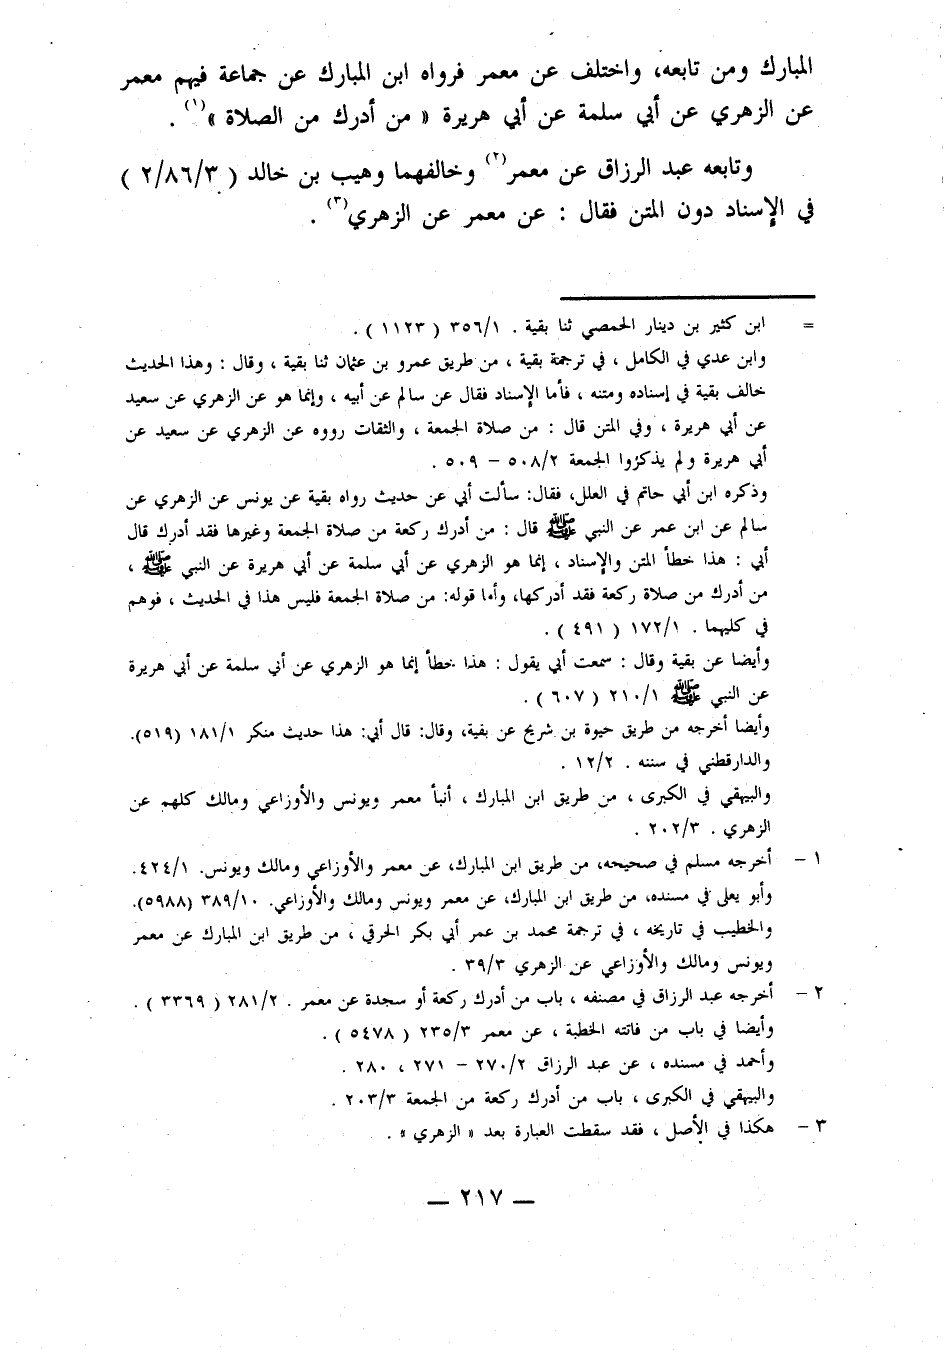 المبارك ومن تابعه، واختلف عن معمر فرواه ابن المبارك عن جماعة فيهم معمر
عن الزهري عن أبي سلمة عن أبي هريرة « من أدرك من الصلاة »(١) .
وتابعه عبد الرزاق عن معمر(٢) وخالفهما وهيب بن خالد ( ٢/٨٦/٣ )
في الإسناد دون المتن فقال : عن معمر عن الزهري(٣) .
= ابن كثير بن دينار الحمصي ثنا بقية . ٣٥٦/١ ( ١١٢٣ ) .
وابن عدي في الكامل ، في ترجمة بقية ، من طريق عمرو بن عثمان ثنا بقية ، وقال : وهذا الحديث
خالف بقية في إسناده ومتنه ، فأما الإسناد فقال عن سالم عن أبيه ، وإنما هو عن الزهري عن سعيد
عن أبي هريرة ، وفي المتن قال : من صلاة الجمعة ، والثقات رووه عن الزهري عن سعيد عن
أبي هريرة ولم يذكروا الجمعة ٥٠٨/٢ – ٥٠٩ .
وذكره ابن أبي حاتم في العلل، فقال: سألت أبي عن حديث رواه بقية عن يونس عن الزهري عن
سالم عن ابن عمر عن النبي ﷺ قال : من أدرك ركعة من صلاة الجمعة وغيرها فقد أدرك قال
أبي : هذا خطأ المتن والإسناد ، إنما هو الزهري عن أبي سلمة عن أبي هريرة عن النبي ﷺ ،
من أدرك من صلاة ركعة فقد أدركها، وأما قوله: من صلاة الجمعة فليس هذا في الحديث ، فوهم
في كليهما . ١٧٢/١ ( ٤٩١ ) .
وأيضا عن بقية وقال : سمعت أبي يقول : هذا خطأ إنما هو الزهري عن أبي سلمة عن أبي هريرة
عن النبي ﷺ ٢١٠/١ ( ٦٠٧ ) .
وأيضا أخرجه من طريق حيوة بن شريح عن بقية، وقال: قال أبي: هذا حديث منكر ١٨١/١ (٥١٩).
والدارقطني في سننه . ١٢/٢ .
والبيهقي في الكبرى ، من طريق ابن المبارك ، أنبأ معمر ويونس والأوزاعي ومالك كلهم عن
الزهري . ٢٠٢/٣ .
١ – أخرجه مسلم في صحيحه، من طريق ابن المبارك، عن معمر والأوزاعي ومالك ويونس. ٤٢٤/١.
وأبو يعلى في مسنده، من طريق ابن المبارك، عن معمر ويونس ومالك والأوزاعي. ٣٨٩/١٠ (٥٩٨٨).
والخطيب في تاريخه ، في ترجمة محمد بن عمر أبي بكر الخرقي ، من طريق ابن المبارك عن معمر
ويونس ومالك والأوزاعي عن الزهري ٣٩/٣ .
٢ – أخرجه عبد الرزاق في مصنفه ، باب من أدرك ركعة أو سجدة عن معمر . ٢٨١/٢ ( ٣٣٦٩ ) .
وأيضا في باب من فاتته الخطبة ، عن معمر ٢٣٥/٣ ( ٥٤٧٨ ) .
وأحمد في مسنده ، عن عبد الرزاق ٢٧٠/٢ – ٢٧١ ، ٢٨٠ .
والبيهقي في الكبرى ، باب من أدرك ركعة من الجمعة ٢٠٣/٣ .
٣ – هكذا في الأصل ، فقد سقطت العبارة بعد « الزهري » .
— ٢١٧ —